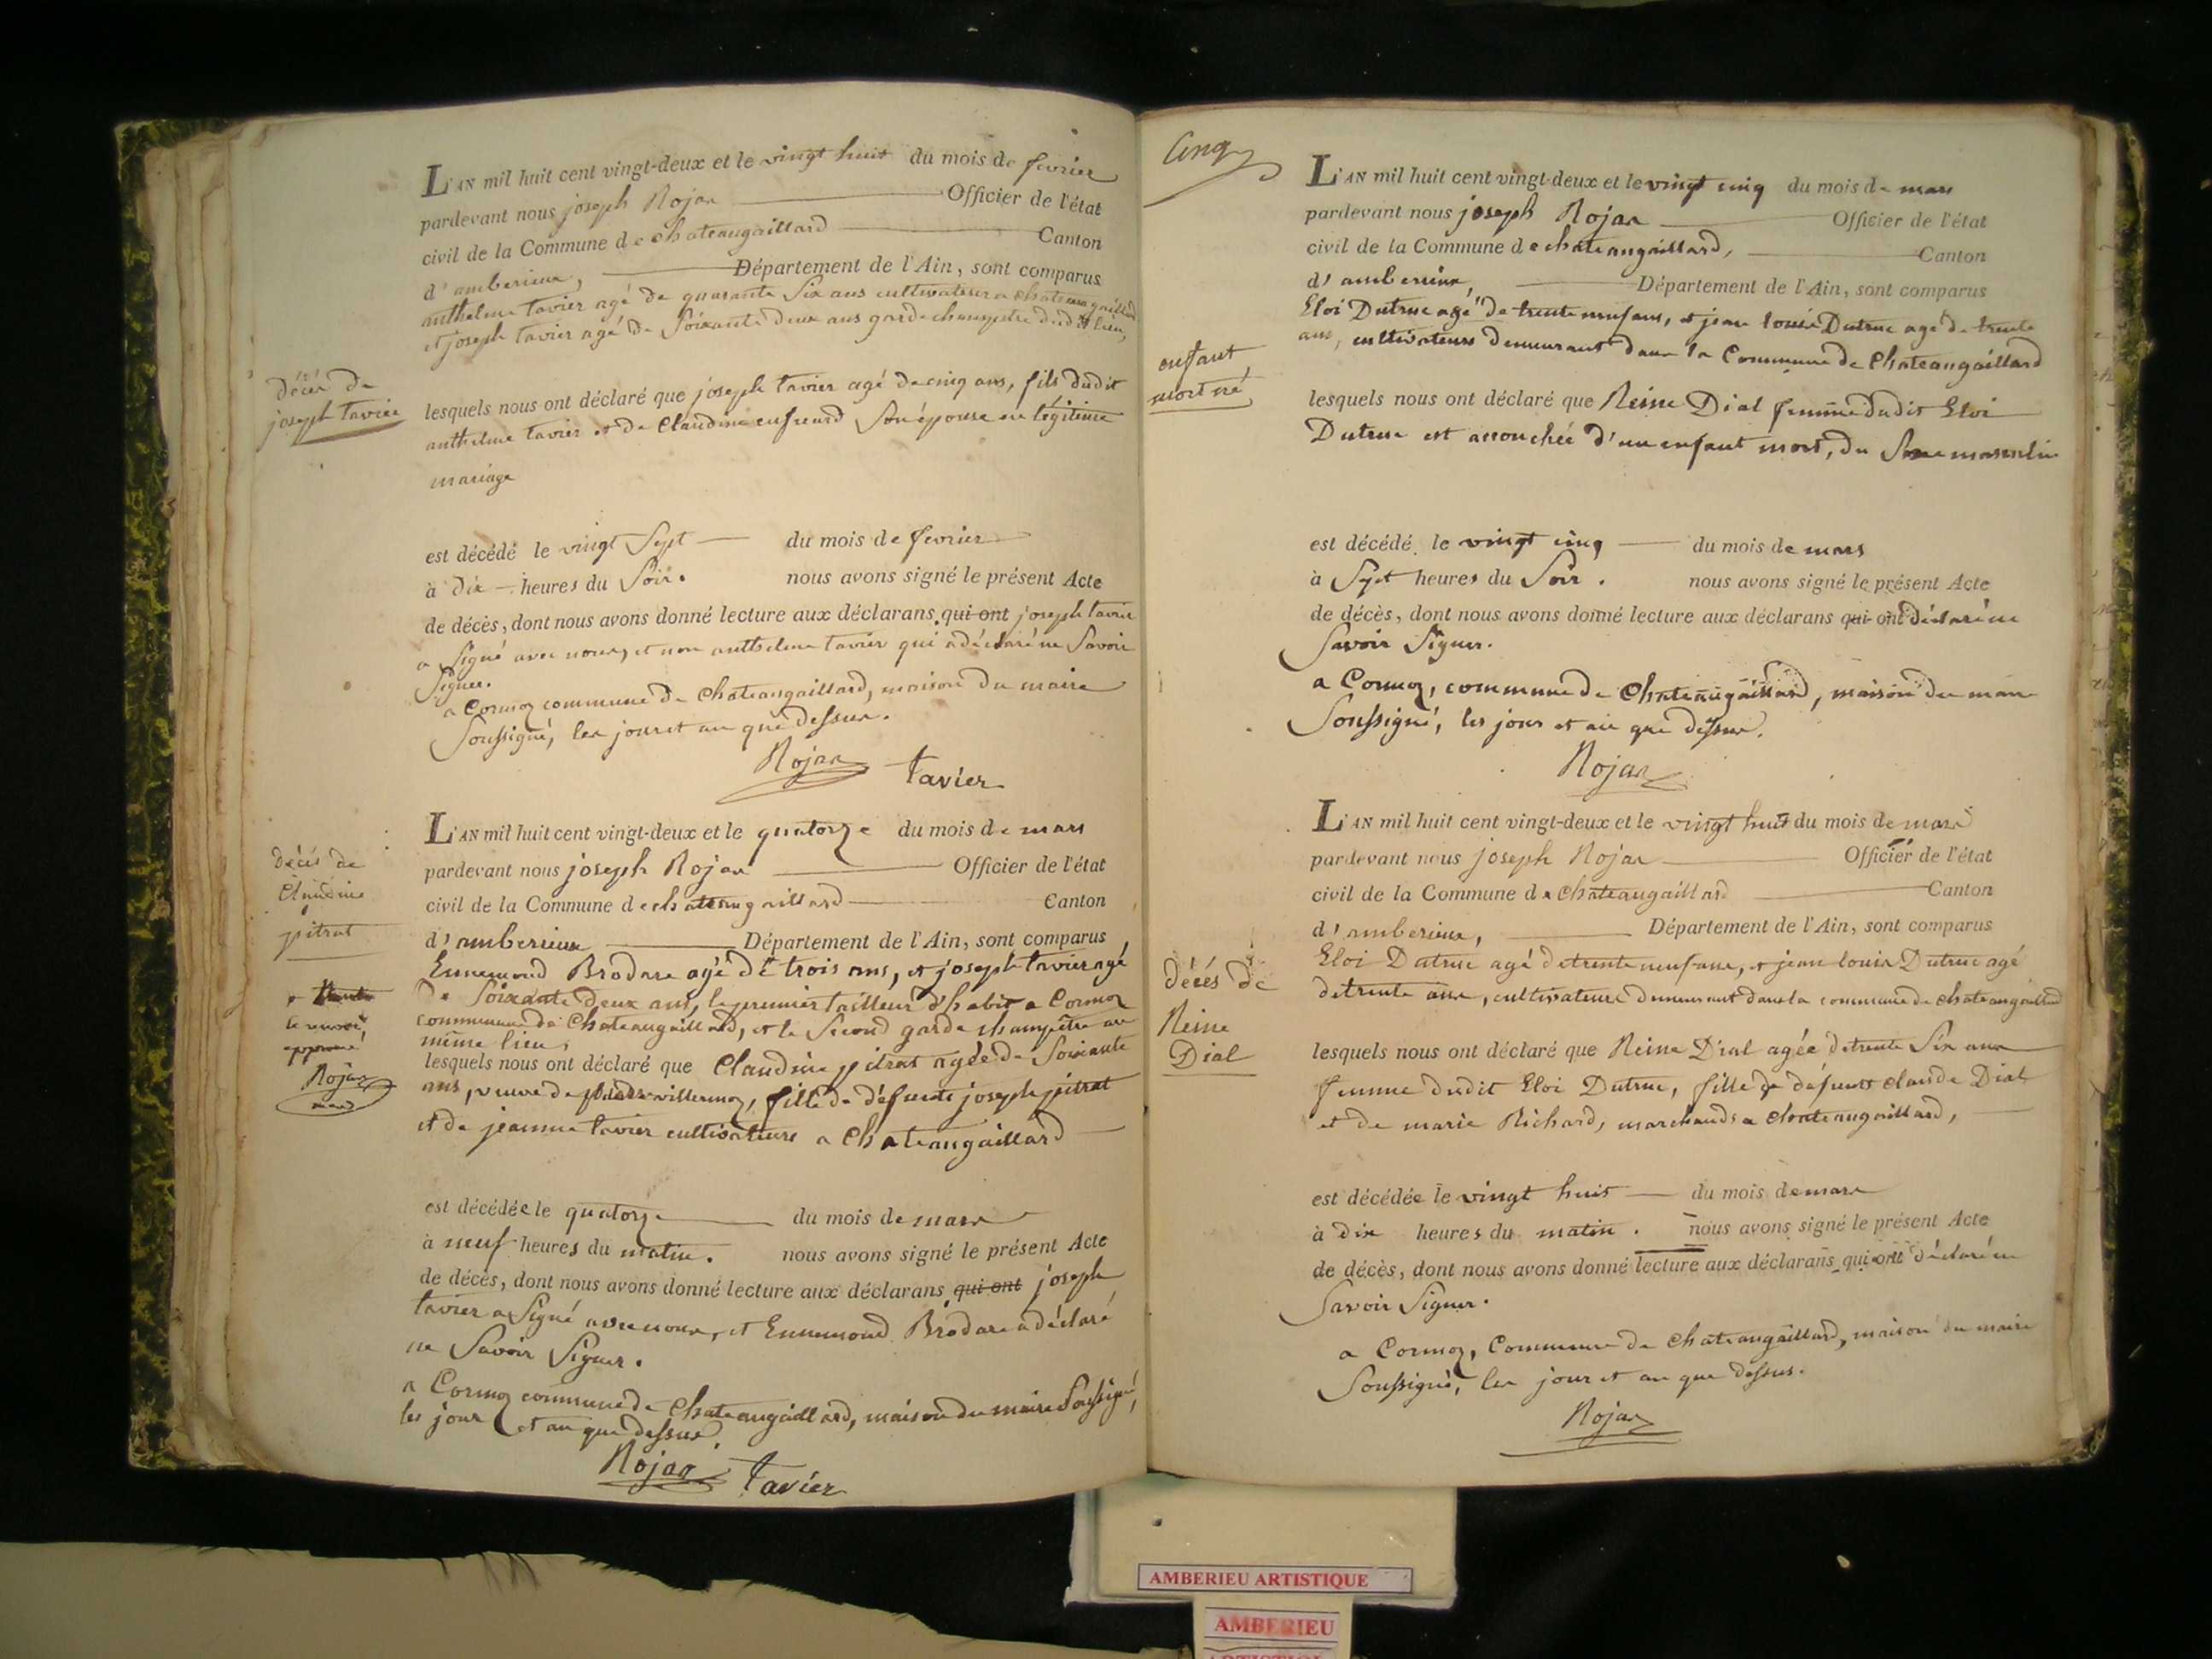 L'AN mil huit cent vingt-deux et le vingt huit du mois de fevrier
pardevant nous joseph Rojar Officier de l'état
civil de la Commune de chateaugaillard Canton
d'amberieux, Département de l'Ain, sont comparus
anthelme tavier agé de quarante Six ans cultivateur a chateaugaillard
et joseph tavier agé de Soixante deux ans garde champetre dudit lieu,
décés de
joseph tavier
lesquels nous ont déclaré que joseph tavier agé de cinq ans, fils dudit
anthelme tavier et de Claudine Son épouse en légitime
mariage
est décédé le vingt Sept du mois de fevrier
à dix heures du Soir. nous avons signé le présent Acte
de décès, dont nous avons donné lecture aux déclarans qui ont joseph tavier
a Signé avec nous, et non anthelme tavier qui a déclaré ne Savoir
Signer.
a Cormoz commune de Chateaugaillard, maison du maire
Soussigné, les jour et an que dessus.
Rojar Tavier
L'AN mil huit cent vingt-deux et le quatorze du mois de mars
pardevant nous joseph Rojar Officier de l'état
civil de la Commune de chateaugaillard Canton
d'amberieux Département de l'Ain, sont comparus
décés de
Claudine
pitrat
Ennemond Brodare agé de trois ans, et joseph tavier agé
de Soixante deux ans, le premier tailleur d'habit a Cormoz
commune de Chateaugaillard, et le Second garde champêtre au
même lieu,
le renvoi
approuvé
Rojar
lesquels nous ont déclaré que Claudine pitrat agée de Soixante
ans, veuve de villermoz, fille de défunts joseph pitrat
et de jeanne tavier cultivateurs a Chateaugaillard
est décédée le quatorze du mois de mars
à neuf heures du matin. nous avons signé le présent Acte
de décès, dont nous avons donné lecture aux déclarans qui ont joseph
tavier a Signé avec nous, et Ennemond Brodare a déclaré
ne Savoir Signer.
a Cormoz commune de Chateaugaillard, maison du maire Soussigné,
les jour et an que dessus.
Rojar Tavier
Cinq
L'AN mil huit cent vingt-deux et le vingt cinq du mois de mars
pardevant nous joseph Rojar Officier de l'état
civil de la Commune de chateaugaillard, Canton
d'amberieux, Département de l'Ain, sont comparus
Eloi Dutruc agé de trente neuf ans, et jean louis Dutruc agé de trente
ans, cultivateurs demeurant dans la Commune de Chateaugaillard
enfant
mort né
lesquels nous ont déclaré que Reine Dial femme dudit Eloi
Dutruc est accouchée d'un enfant mort, du Sexe masculin
est décédé le vingt cinq du mois de mars
à Sept heures du Soir. nous avons signé le présent Acte
de décès, dont nous avons donné lecture aux déclarans qui ont déclaré ne
Savoir Signer.
a Cormoz, commune de Chateaugaillard, maison du maire
Soussigné, les jour et an que dessus.
Rojar
L'AN mil huit cent vingt-deux et le vingt huit du mois de mars
pardevant nous joseph Rojar Officier de l'état
civil de la Commune de chateaugaillard Canton
d'amberieux, Département de l'Ain, sont comparus
Eloi Dutruc agé de trente neuf ans, et jean louis Dutruc agé
de trente ans, cultivateurs demeurant dans la commune de chateaugaillard
décés de
Reine
Dial
lesquels nous ont déclaré que Reine Dial agée de trente Six ans
femme dudit Eloi Dutruc, fille de défunt claude Dial
et de marie Richard, marchands a chateaugaillard,
est décédée le vingt huit du mois de mars
à dix heures du matin. nous avons signé le présent Acte
de décès, dont nous avons donné lecture aux déclarans qui ont déclaré ne
Savoir Signer.
a Cormoz, Commune de Chateaugaillard, maison du maire
Soussigné, les jour et an que dessus.
Rojar
AMBERIEU ARTISTIQUE
AMBERIEU
ARTISTIQUE